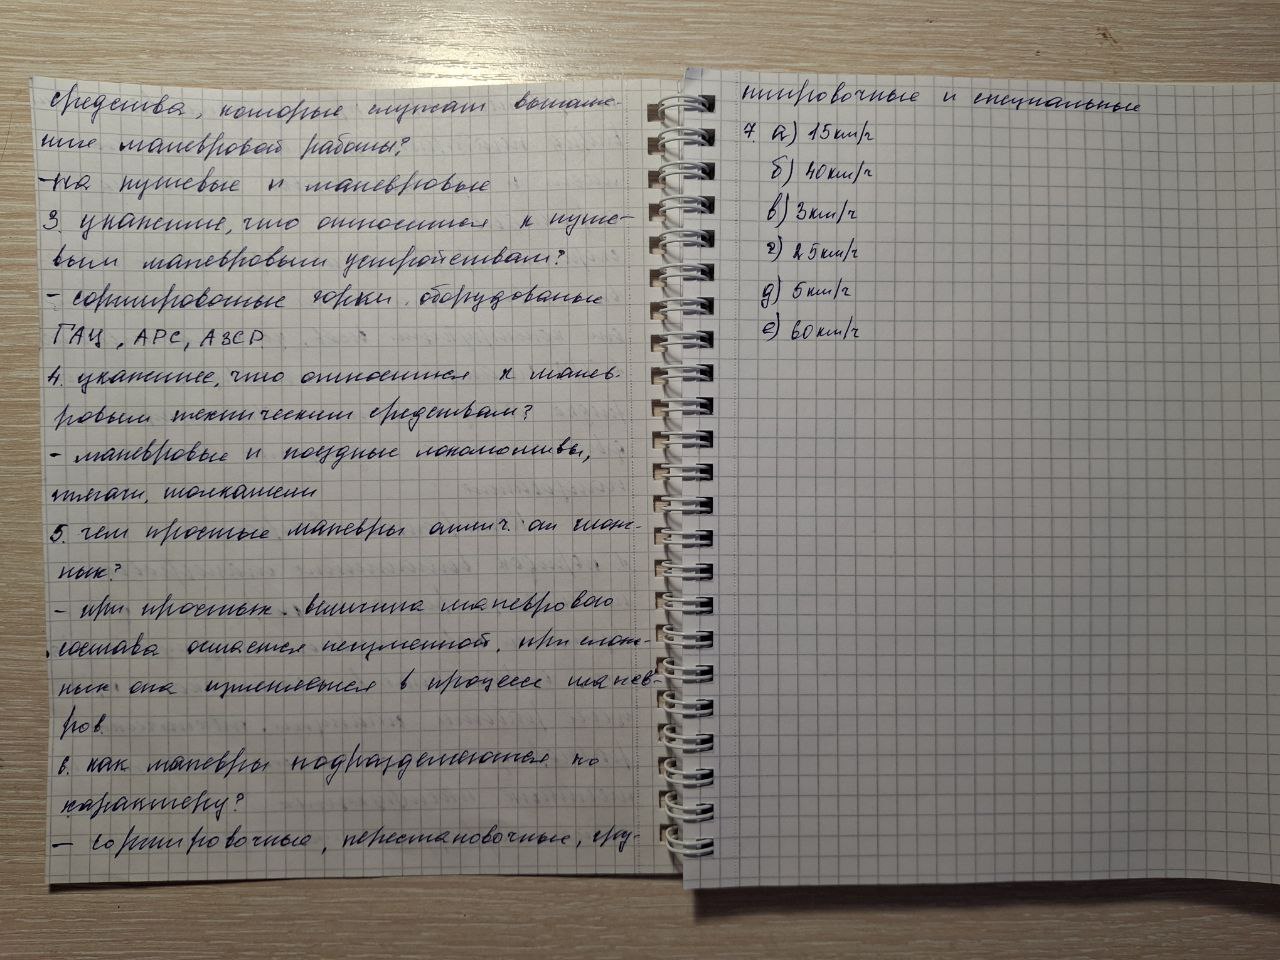 средства, которые служат выполне-
ние маневровой работы?
- на путевые и маневровые
3. укажите, что относится к путе-
вым маневровым устройствам?
- сортировочные горки, оборудованые
ГАЦ, АРС, АЗСР
4. укажите, что относится к манев-
ровым техническим средствам?
- маневровые и поездные локомотивы,
тягачи, толкатели
5. чем простые маневры отлич. от слож-
ных?
- при простых величина маневрового
состава остается неизменной, при слож-
ных она изменяется в процессе манев-
ров.
6. как маневры подразделяются по
характеру?
- сортировочные, перестановочные, гру-
пировочные и специальные
7. а) 15км/ч
б) 40км/ч
в) 3км/ч
г) 25км/ч
д) 5км/ч
е) 60км/ч